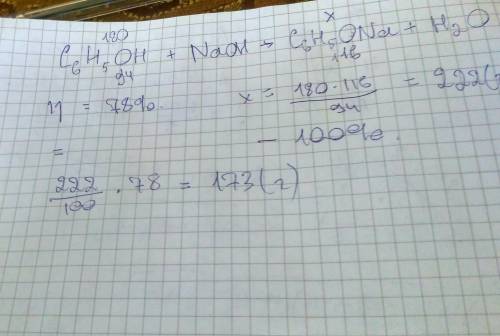 180 x
C₆H₅OH + NaOH → C₆H₅ONa + H₂O
94 116
η = 78% x = 180·116 / 94 = 222(
= — 100%.
222/100 · 78 = 173(г)